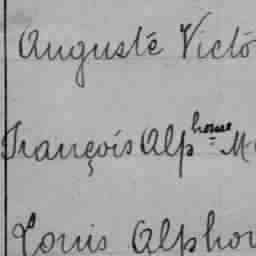 Auguste Victo
François Alphonse M
Louis Alphon